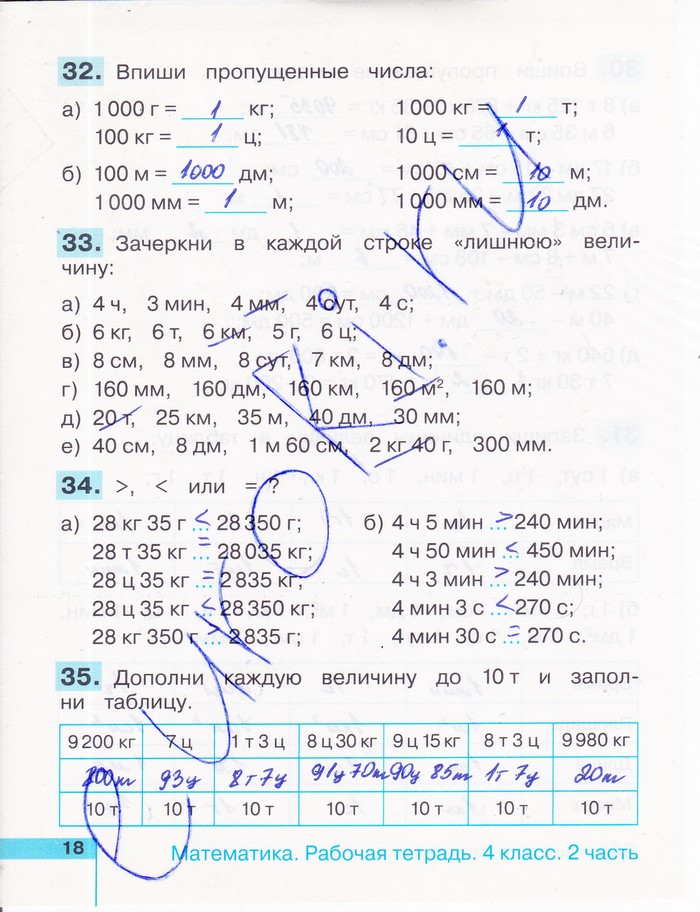 32. Впиши пропущенные числа:
а) 1 000 г = 1 кг; 1 000 кг = 1 т;
100 кг = 1 ц; 10 ц = 1 т;
б) 100 м = 1000 дм; 1 000 см = 10 м;
1 000 мм = 1 м; 1 000 мм = 10 дм.
33. Зачеркни в каждой строке «лишнюю» вели-
чину:
а) 4 ч, 3 мин, 4 мм, 4 сут, 4 с;
б) 6 кг, 6 т, 6 км, 5 г, 6 ц;
в) 8 см, 8 мм, 8 сут, 7 км, 8 дм;
г) 160 мм, 160 дм, 160 км, 160 м², 160 м;
д) 20 т, 25 км, 35 м, 40 дм, 30 мм;
е) 40 см, 8 дм, 1 м 60 см, 2 кг 40 г, 300 мм.
34. >, < или = ?
а) 28 кг 35 г < 28 350 г; б) 4 ч 5 мин > 240 мин;
28 т 35 кг = 28 035 кг; 4 ч 50 мин < 450 мин;
28 ц 35 кг = 2 835 кг; 4 ч 3 мин > 240 мин;
28 ц 35 кг < 28 350 кг; 4 мин 3 с < 270 с;
28 кг 350 г > 2 835 г; 4 мин 30 с = 270 с.
35. Дополни каждую величину до 10 т и запол-
ни таблицу.
9 200 кг 7 ц 1 т 3 ц 8 ц 30 кг 9 ц 15 кг 8 т 3 ц 9 980 кг
93 ц 8 т 7 ц 91 ц 70 90 ц 85 1 т 7 ц 20
10 т 10 т 10 т 10 т 10 т 10 т 10 т
18 Математика. Рабочая тетрадь. 4 класс. 2 часть